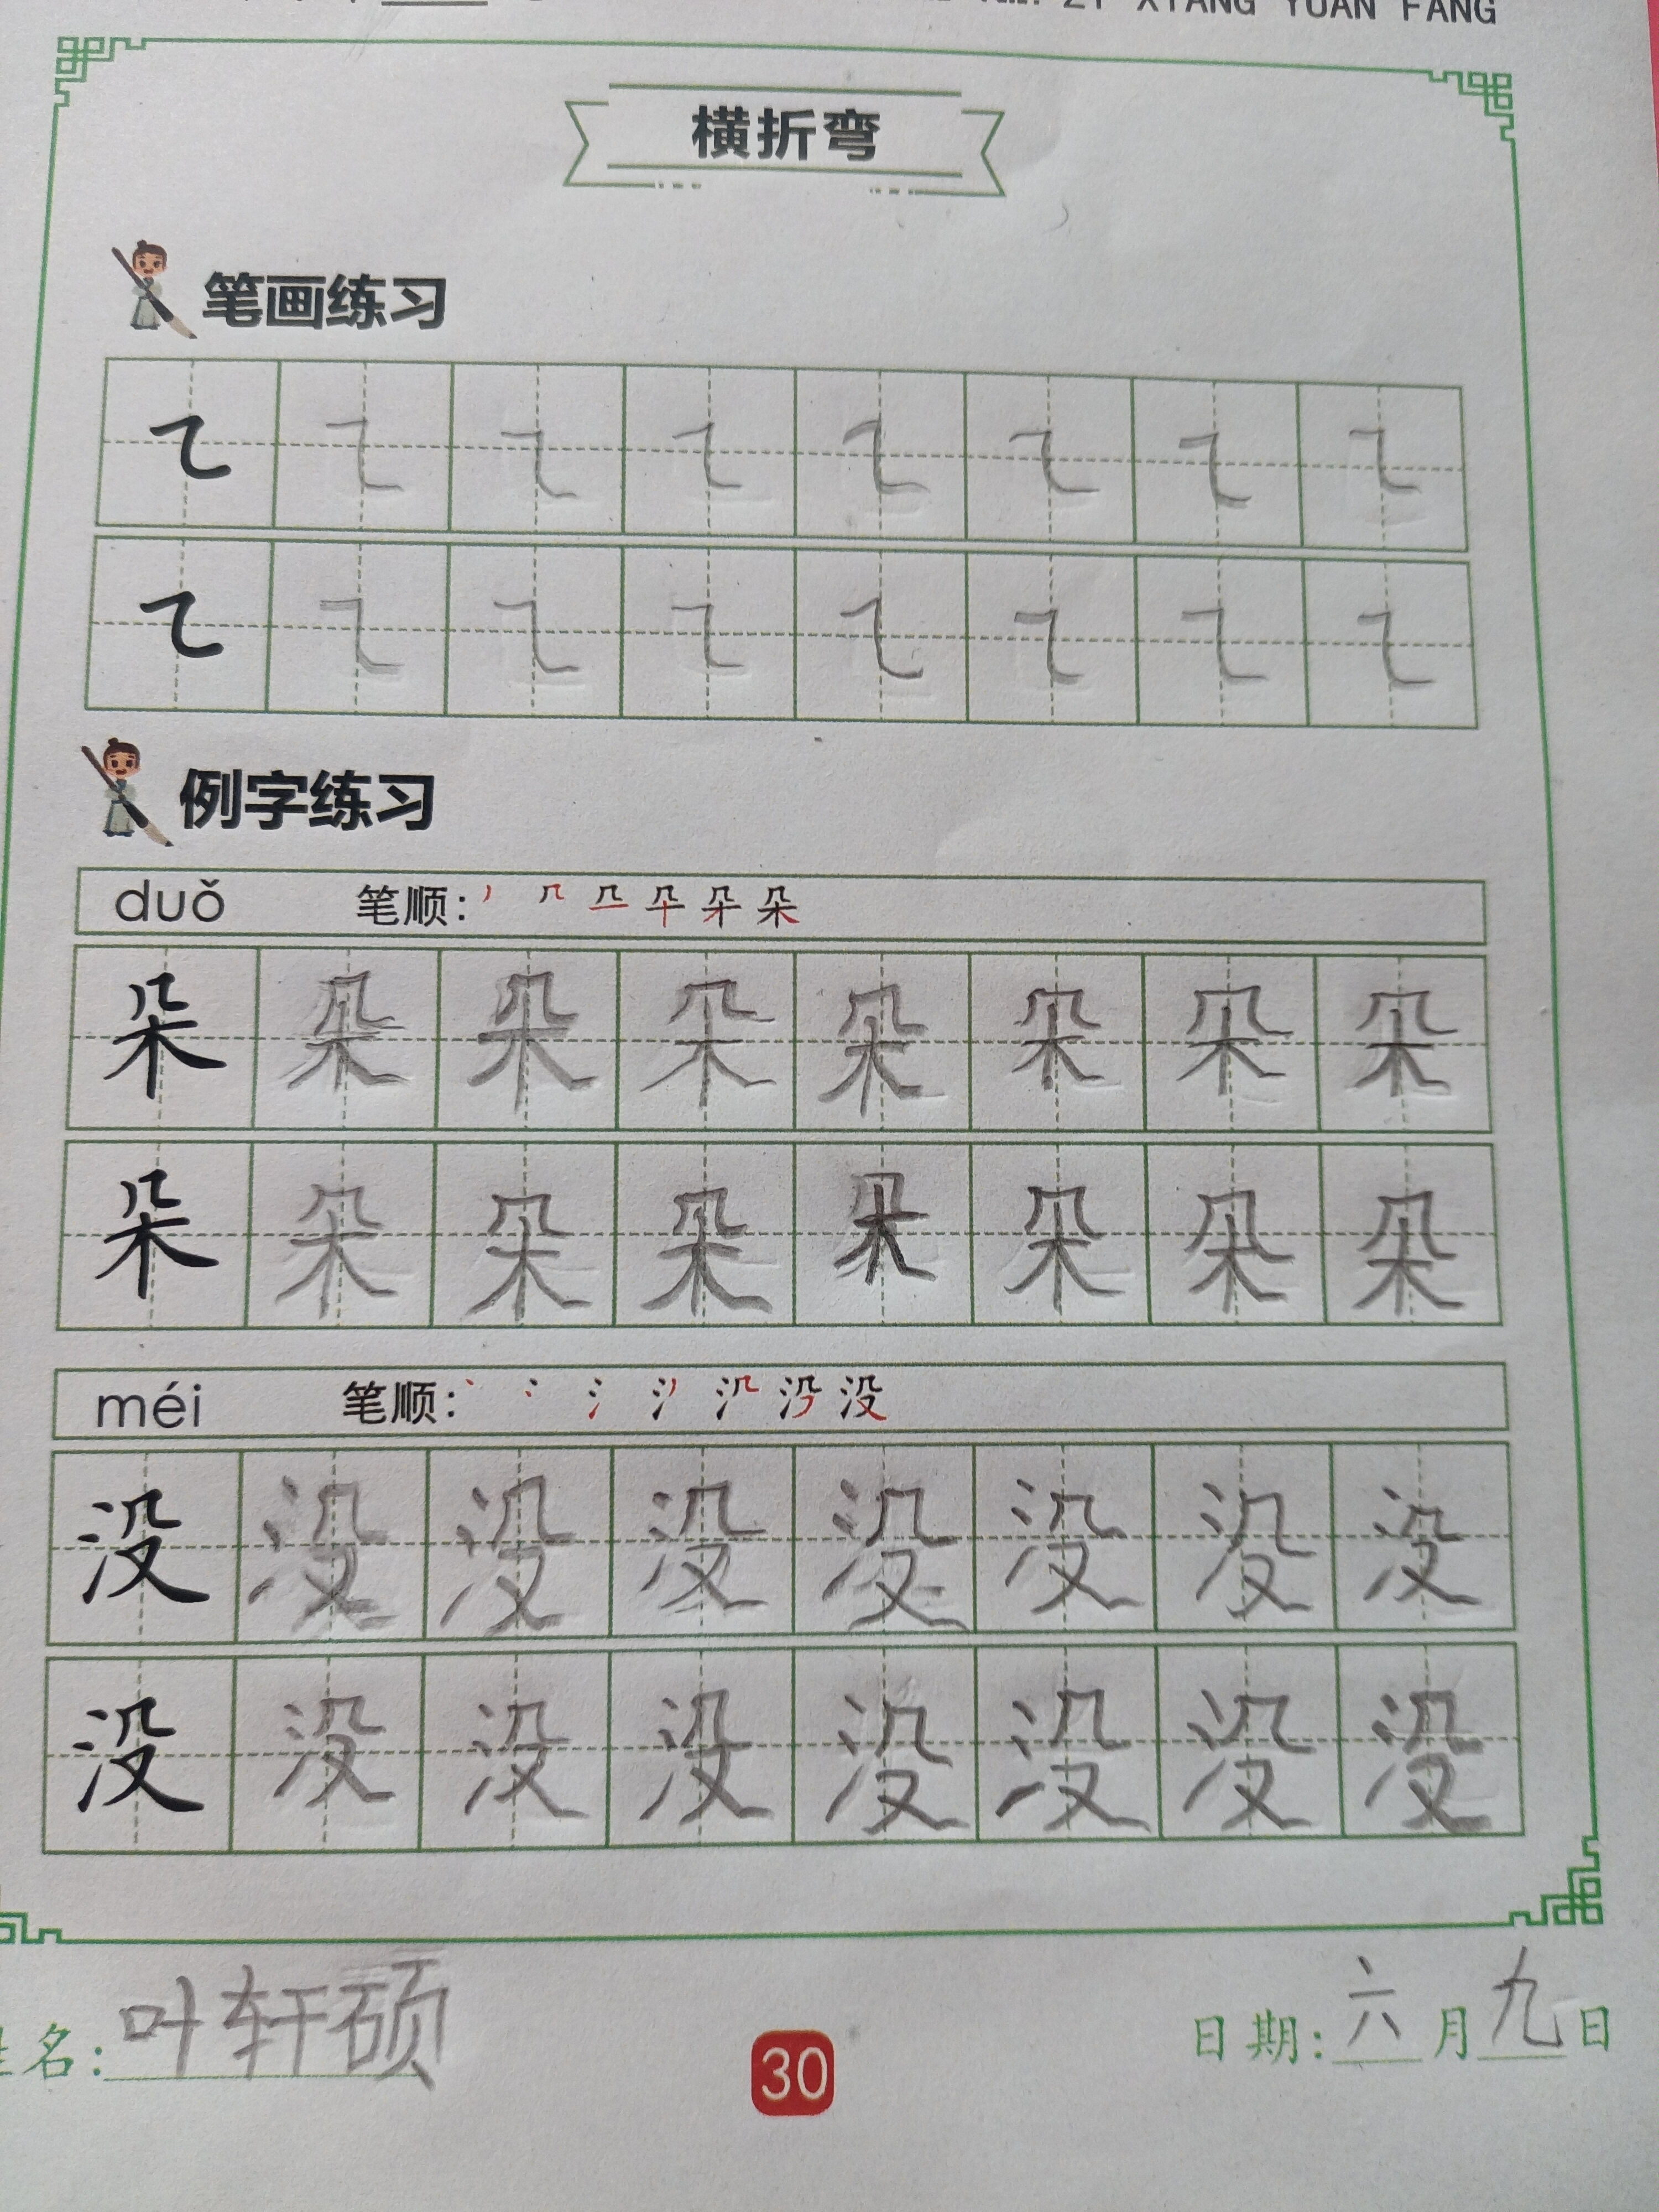 ZI XIANG YUAN FANG
横折弯
笔画练习
㇍ ㇍ ㇍ ㇍ ㇍ ㇍ ㇍ ㇍
㇍ ㇍ ㇍ ㇍ ㇍ ㇍ ㇍ ㇍
例字练习
duǒ 笔顺: 朵
朵 朵 朵 朵 朵 朵 朵 朵
朵 朵 朵 朵 朵 朵 朵 朵
méi 笔顺: 没
没 没 没 没 没 没 没 没
没 没 没 没 没 没 没 没
姓名: 叶轩硕 30 日期: 六月九日